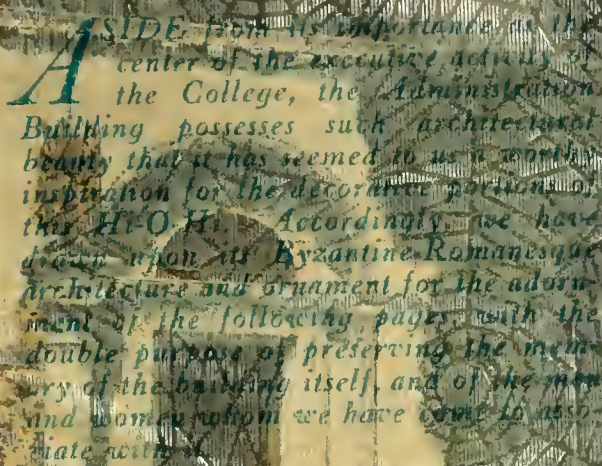 ASIDE from its importance as the
center of the executive activity of
the College, the Administration
Building possesses such architectural
beauty that it has seemed to us a worthy
inspiration for the decorative portions of
this Hi-O-Hi. Accordingly we have
drawn upon its Byzantine-Romanesque
architecture and ornament for the adorn-
ment of the following pages with the
double purpose of preserving the mem-
ory of the building itself, and of the men
and women whom we have come to asso-
ciate with it.